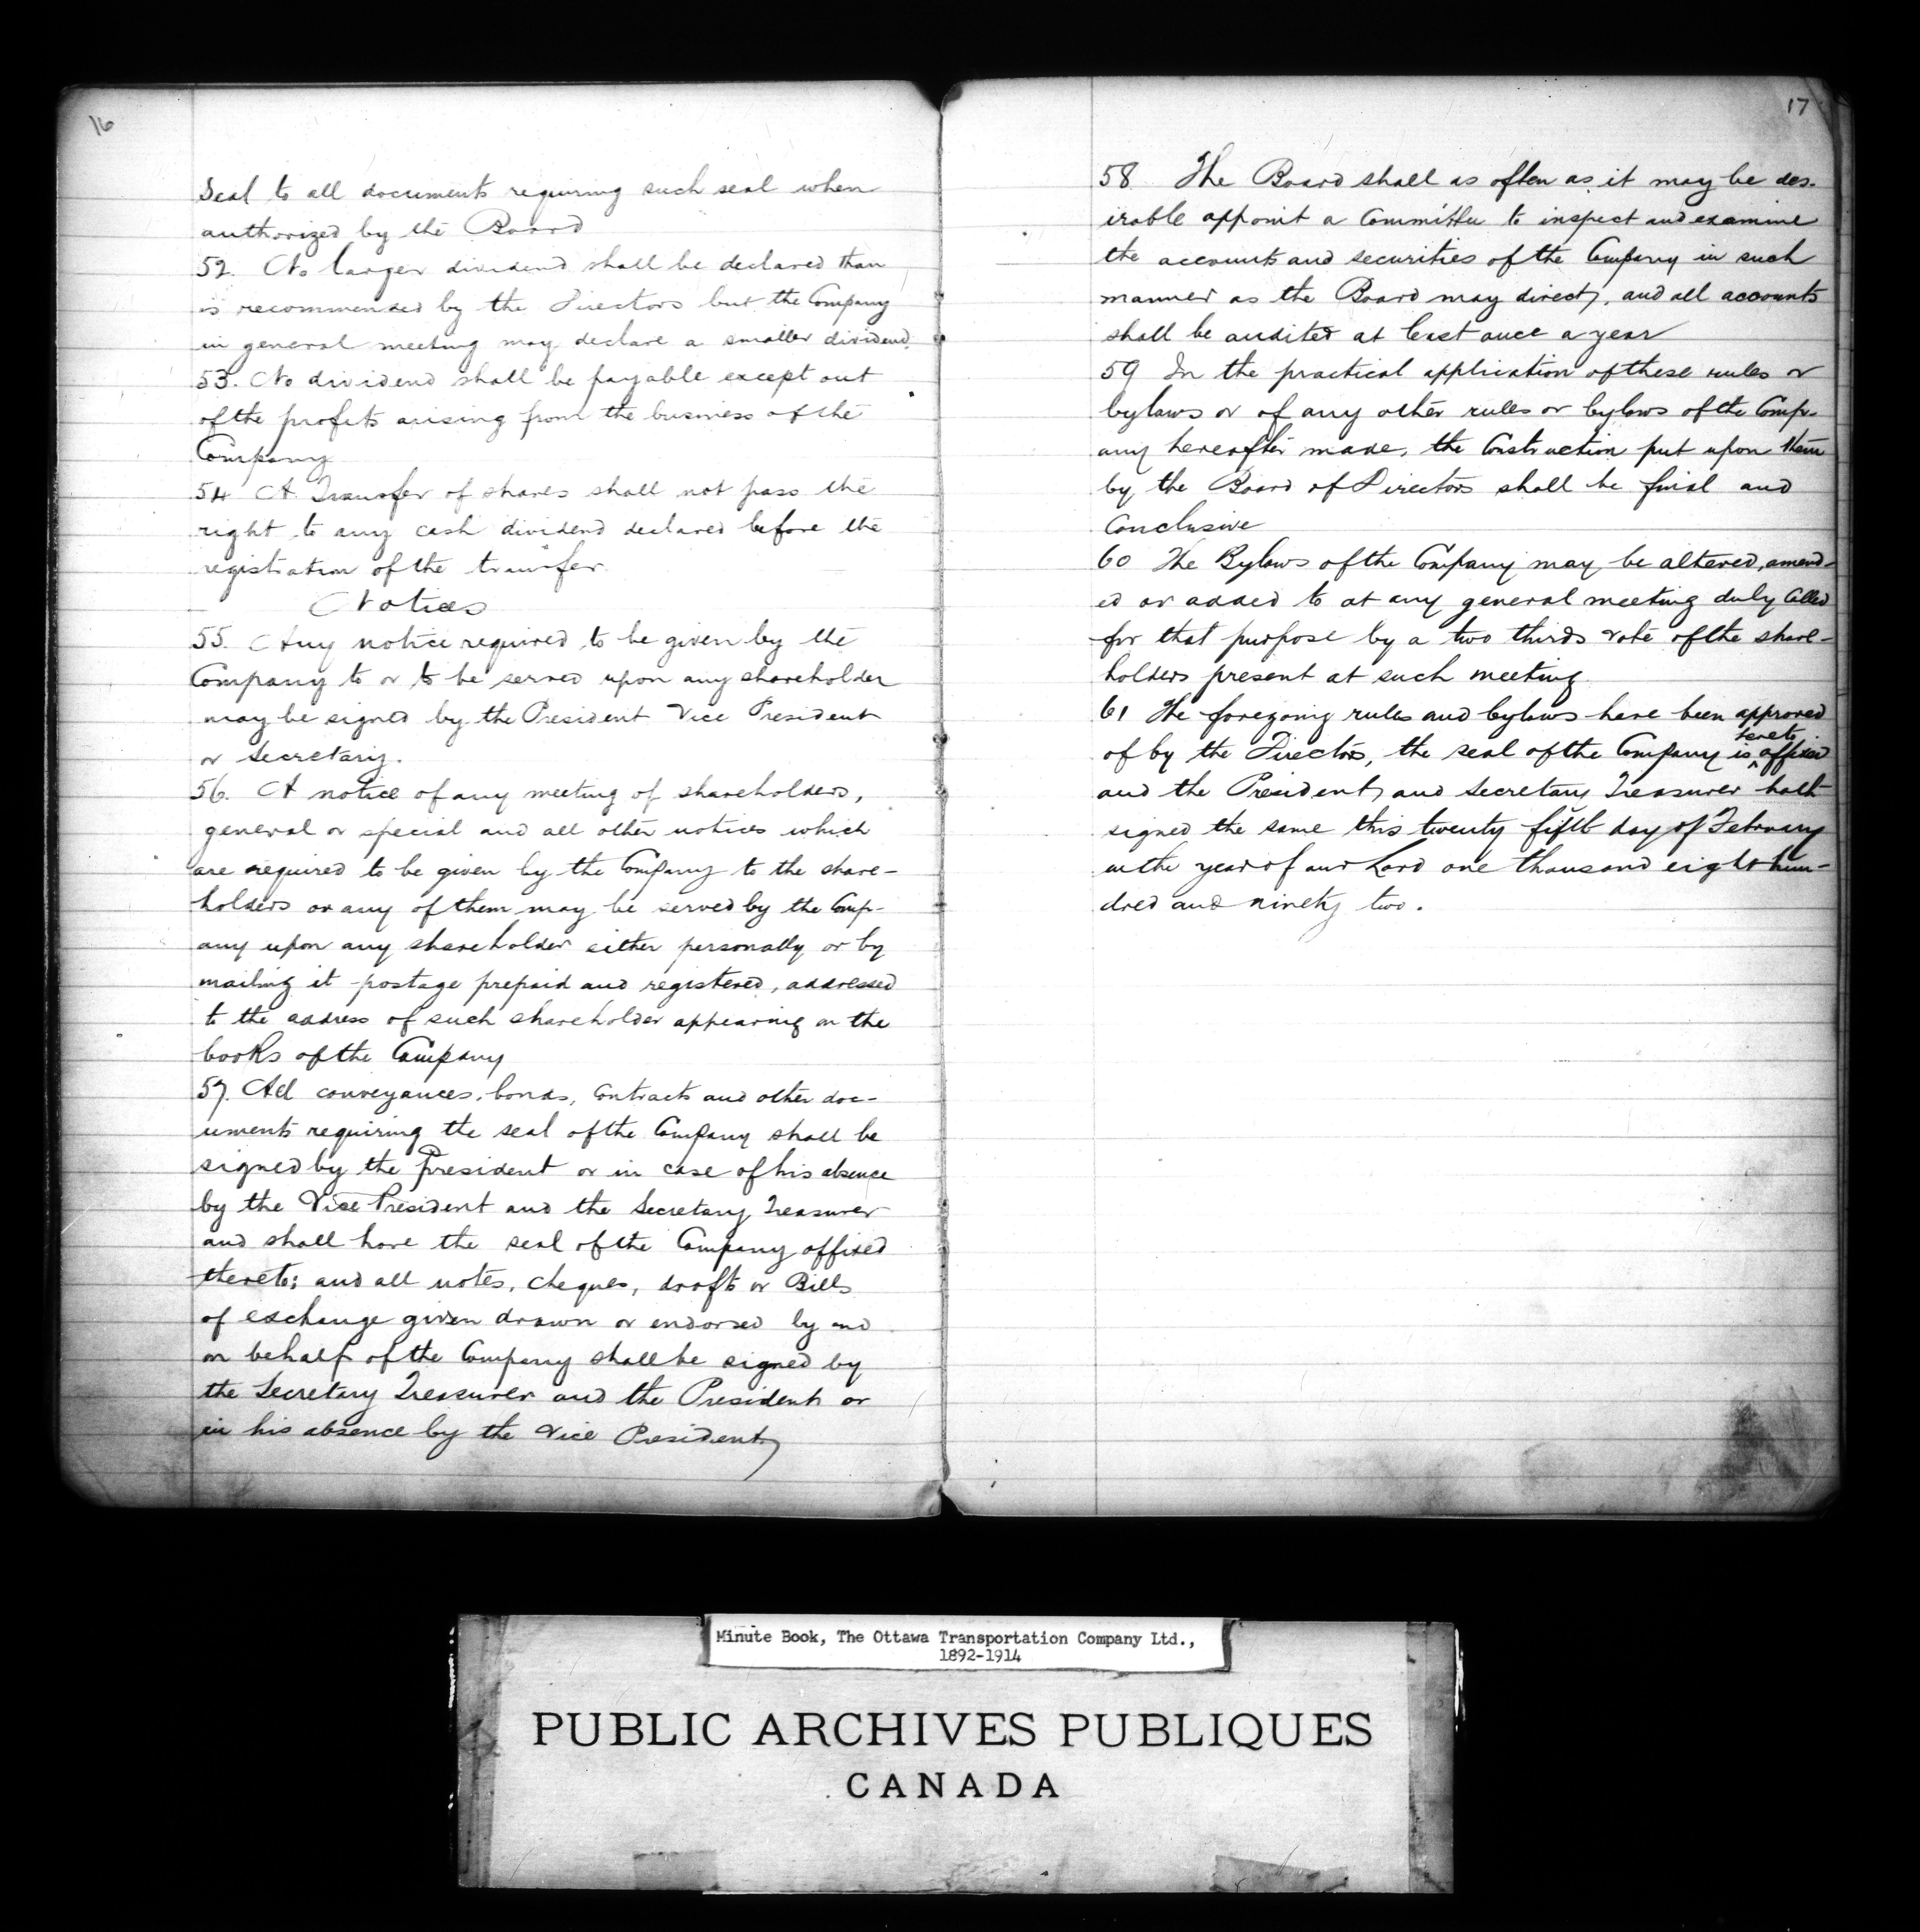 16
Seal to all documents requiring such seal when
authorized by the Board
52. No larger dividend shall be declared than
is recommended by the Directors but the Company
in general meeting may declare a smaller dividend.
53. No dividend shall be payable except out
of the profits arising from the business of the
Company
54 A Transfer of shares shall not pass the
right to any cash dividend declared before the
registration of the transfer.
Notices
55. Any notice required to be given by the
Company to or to be served upon any shareholder
may be signed by the President Vice President
or Secretary.
56. A notice of any meeting of shareholders,
general or special and all other notices which
are required to be given by the Company to the share-
holders or any of them may be served by the Comp-
any upon any shareholder either personally or by
mailing it postage prepaid and registered, addressed
to the address of such shareholder appearing on the
books of the Company
57. All conveyances, bonds, contracts and other doc-
uments requiring the seal of the Company shall be
signed by the President or in case of his absence
by the Vice President and the Secretary Treasurer
and shall have the seal of the Company affixed
thereto; and all notes, cheques, drafts or Bills
of exchange given drawn or endorsed by and
on behalf of the Company shall be signed by
the Secretary Treasurer and the President or
in his absence by the Vice President
17
58 The Board shall as often as it may be des-
irable appoint a Committee to inspect and examine
the accounts and securities of the Company in such
manner as the Board may direct, and all accounts
shall be audited at least once a year
59 In the practical application of these rules or
bylaws or of any other rules or bylaws of the Comp-
any hereafter made, the Construction put upon them
by the Board of Directors shall be final and
Conclusive
60 The Bylaws of the Company may be altered, amend-
ed or added to at any general meeting duly Called
for that purpose by a two thirds vote of the share-
holders present at such meeting
61 The foregoing rules and bylaws have been approved
of by the Directors, the seal of the Company is hereto affixed
and the President, and Secretary Treasurer hath
signed the same this twenty fifth day of February
in the year of our Lord one thousand eight hun-
dred and ninety two.
Minute Book, The Ottawa Transportation Company Ltd.,
1892-1914
PUBLIC ARCHIVES PUBLIQUES
CANADA